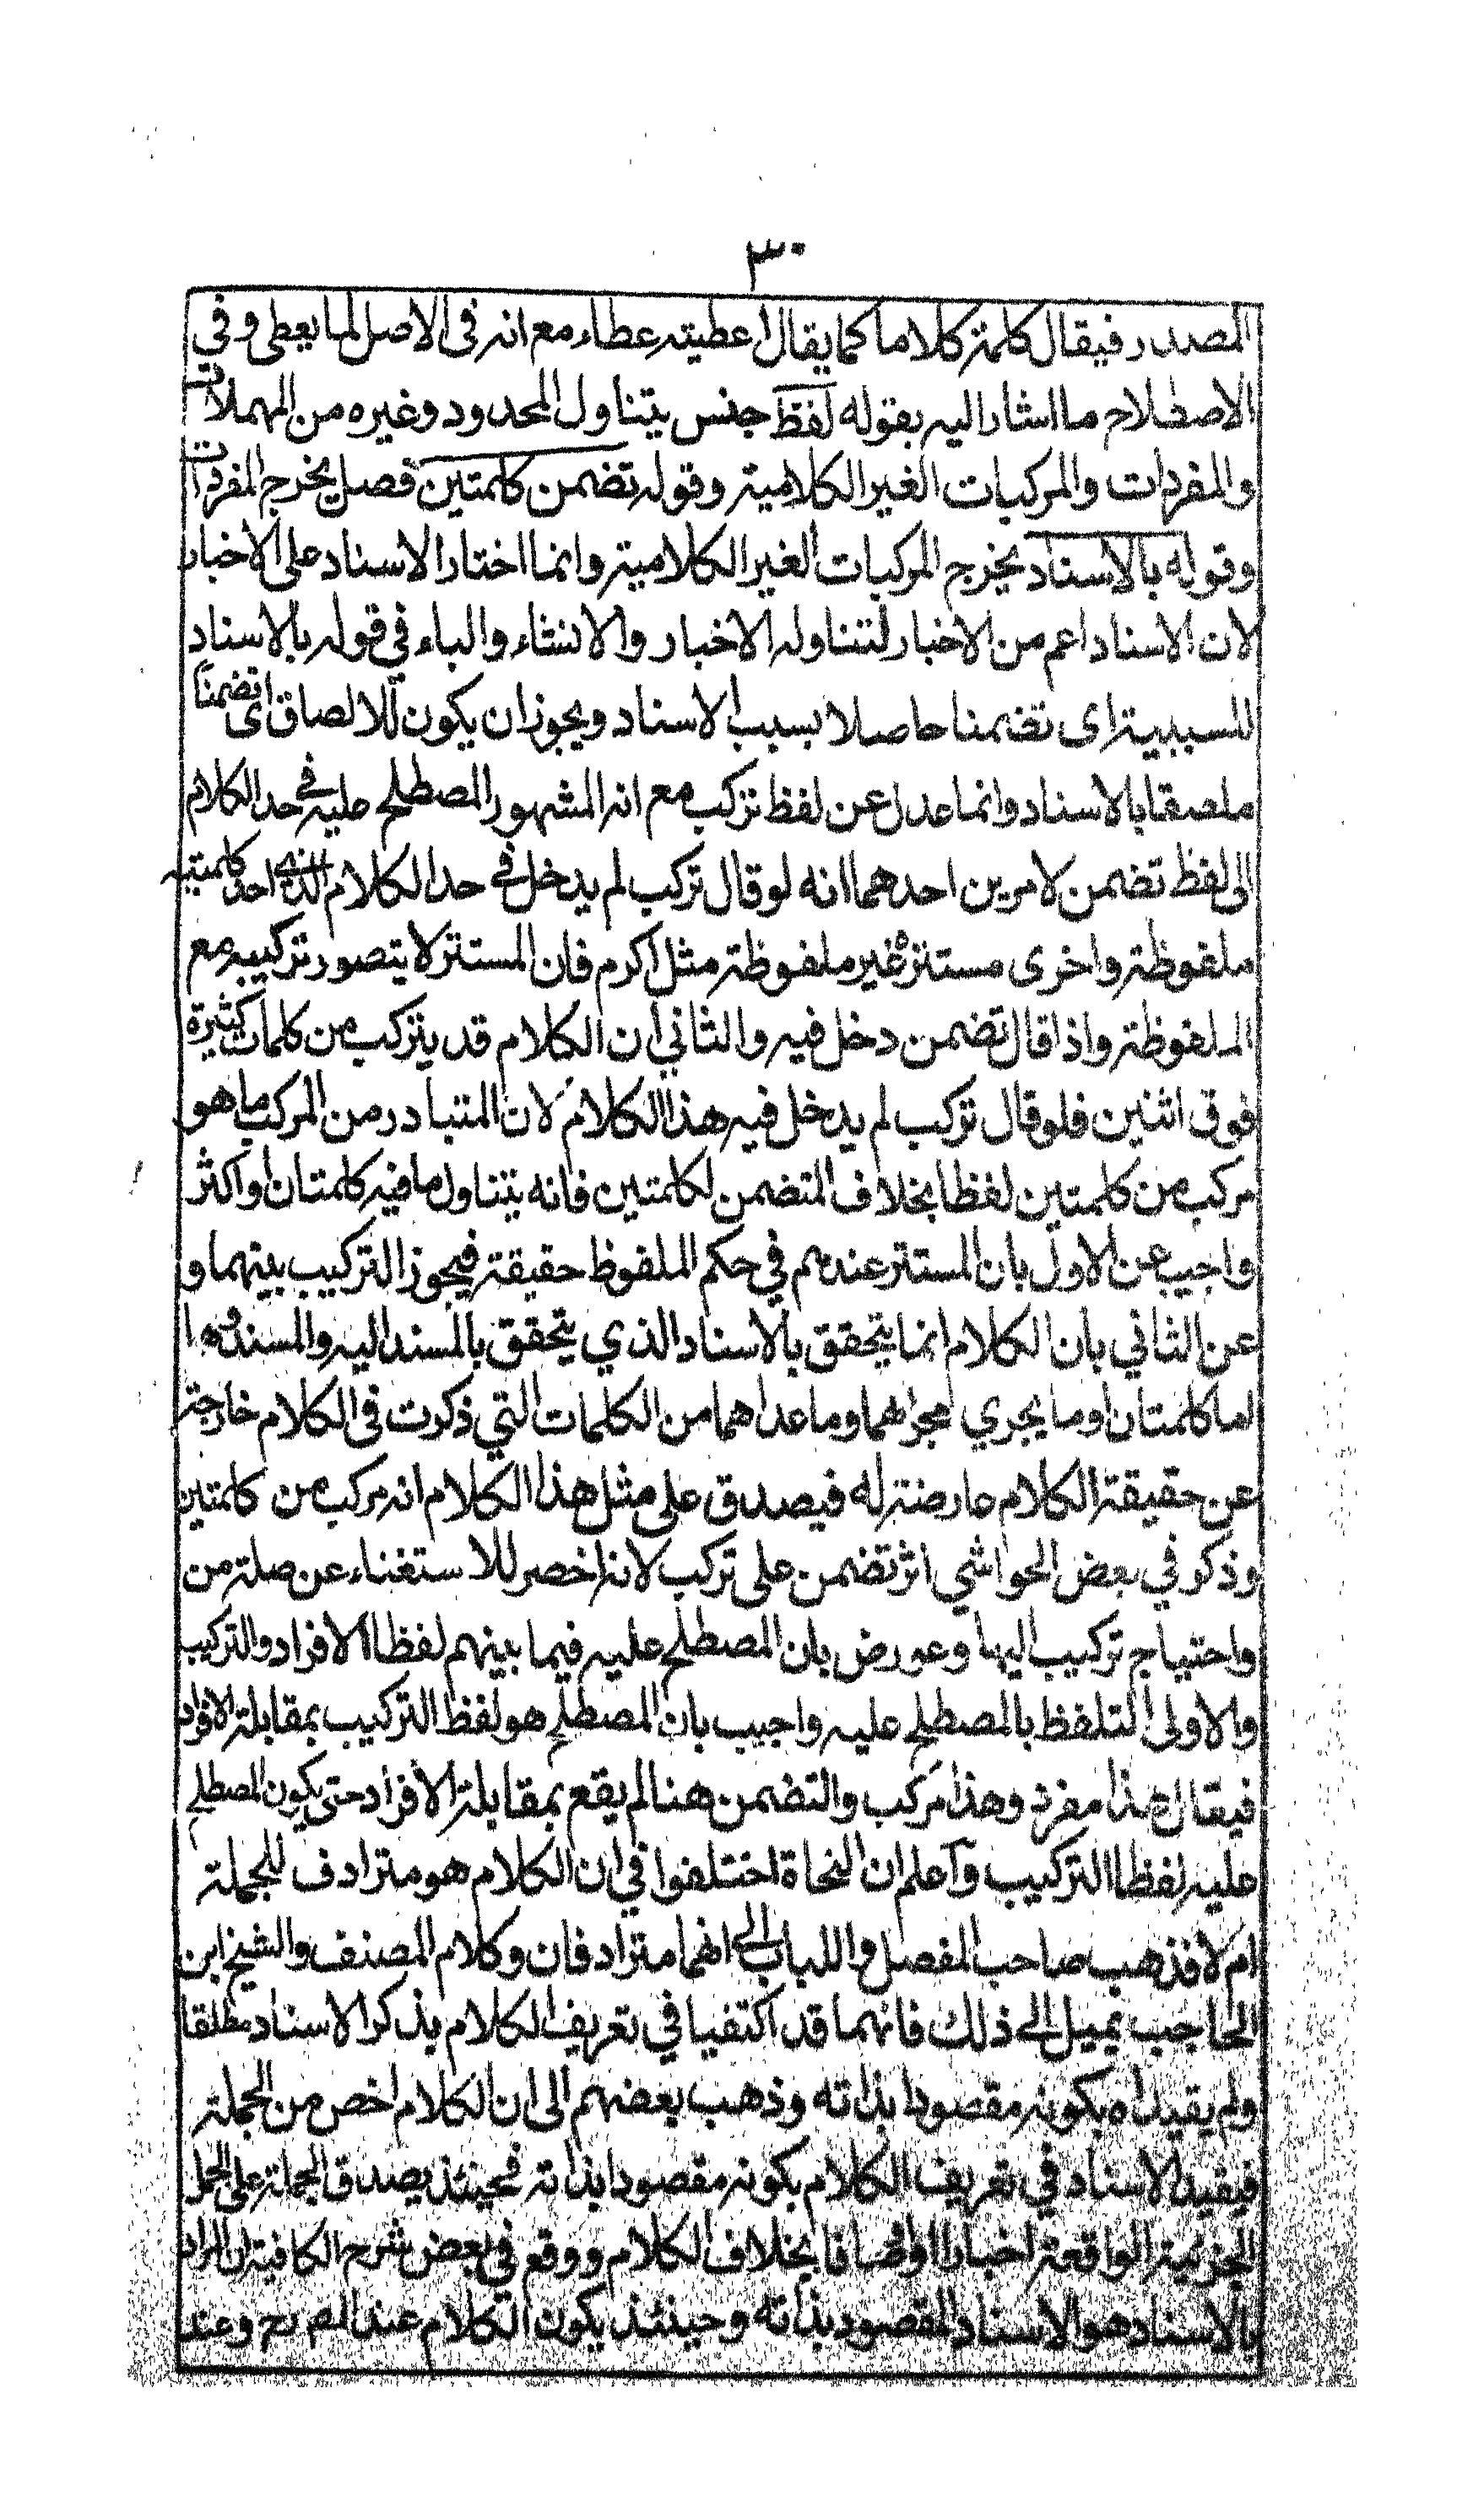 ٣٠
المصدر فيقال كلمته كلاما كما يقال اعطيته عطاء مع انه فى الاصل لما يعطى وفي
الاصطلاح ما اشار اليه بقوله لفظ جنس يتناول المحدود وغيره من المهملات
والمفردات والمركبات الغير الكلامية وقوله تضمن كلمتين فصل يخرج المفردات
وقوله بالاسناد يخرج المركبات الغير الكلامية وانما اختار الاسناد على الاخبار
لان الاسناد اعم من الاخبار لتناوله الاخبار والانشاء والباء في قوله بالاسناد
للسببية اى تضمنا حاصلا بسبب الاسناد ويجوز ان يكون للالصاق اى تضمنا
ملصقا بالاسناد وانما عدل عن لفظ تركب مع انه المشهور المصطلح عليه في حد الكلام
الى لفظ تضمن لامرين احدهما انه لو قال تركب لم يدخل في حد الكلام الذي احد كلمتيه
ملفوظة واخرى مستترة غير ملفوظة مثل اكرم فان المستتر لا يتصور تركيبه مع
الملفوظة واذا قال تضمن دخل فيه والثاني ان الكلام قد يتركب من كلمات كثيرة
فوق اثنين فلو قال تركب لم يدخل فيه هذا الكلام لان المتبادر من المركب ما هو
مركب من كلمتين لفظا بخلاف المتضمن لكلمتين فانه يتناول ما فيه كلمتان او اكثر
واجيب عن الاول بان المستتر عندهم في حكم الملفوظ حقيقة فيجوز التركيب بينهما و
عن الثاني بان الكلام انما يتحقق بالاسناد الذي يتحقق بالمسند اليه والمسند وهما
اما كلمتان او ما يجري مجراهما وما عداهما من الكلمات التي ذكرت فى الكلام خارجة
عن حقيقة الكلام عارضة له فيصدق على مثل هذا الكلام انه مركب من كلمتين
وذكر في بعض الحواشي اثر تضمن على تركب لانه اخصر للاستغناء عن صلة من
واحتياج تركيب اليها وعورض بان المصطلح عليه فيما بينهم لفظا الافراد والتركيب
والاولى التلفظ بالمصطلح عليه واجيب بان المصطلح هو لفظ التركيب بمقابلة الافراد
فيقال هذا مفرد وهذا مركب والتضمن هنا لم يقع بمقابلة الافراد حتى يكون المصطلح
عليه لفظا التركيب وآعلم ان النحاة اختلفوا في ان الكلام هو مترادف للجملة
ام لا فذهب صاحب المفصل واللباب الى انهما مترادفان وكلام المصنف والشيخ ابن
الحاجب يميل الى ذلك فانهما قد اكتفيا في تعريف الكلام بذكر الاسناد مطلقا
ولم يقيداه بكونه مقصودا بذاته وذهب بعضهم الى ان الكلام اخص من الجملة
فيقيد الاسناد في تعريف الكلام بكونه مقصودا بذاته فحينئذ يصدق الجملة على الجمل
الجزئية الواقعة اخبارا او اوصافا بخلاف الكلام ووقع في بعض شرح الكافية ان المراد
بالاسناد هو الاسناد المقصود بذاته وحينئذ يكون الكلام عند المص رح وعند